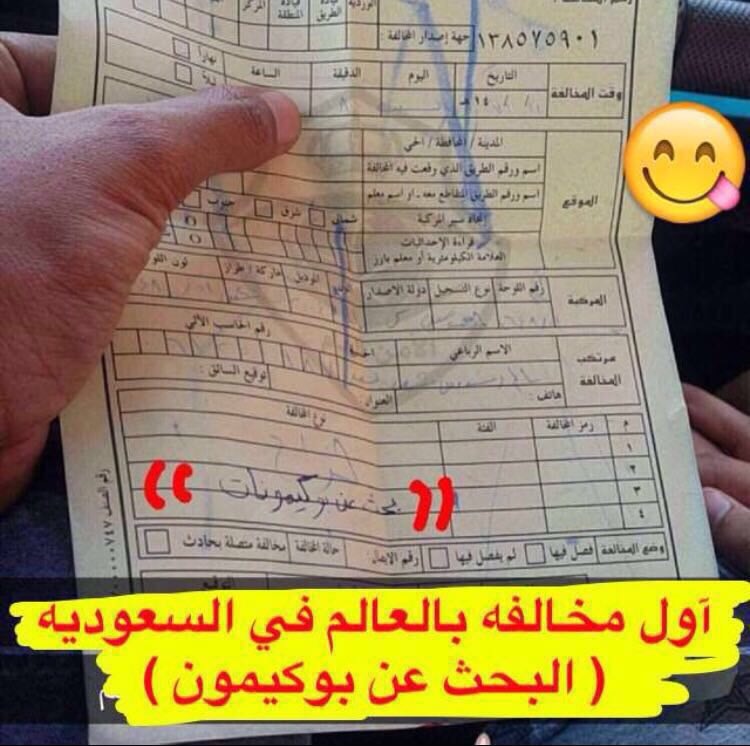 الوردية قيادة الطريق قيادة المنطقة المركز
١٣٨٥٧٥٩٠١ جهة إصدار المخالفة :
وقت المخالفة التاريخ اليوم الدقيقة الساعة نهاراً
١٤ هـ ليلاً
الموقع
المدينة / المحافظة / الحي
اسم ورقم الطريق الذي وقعت فيه المخالفة
اسم ورقم الطريق المتقاطع معه . او اسم معلم
إتجاه سير المركبة شمال شرق جنوب
قراءة الإحداثيات
العلامة الكيلومترية أو معلم بارز
المركبة رقم اللوحة نوع التسجيل دولة الاصدار الموديل ماركة / طراز لون
مرتكب المخالفة الاسم الرباعي رقم الحاسب الآلي
هاتف : العنوان : توقيع السائق :
م رمز المخالفة الفئة نوع المخالفة
١
٢
٣
٤
" بحث عن بوكيمونات "
وضع المخالفة فصل فيها لم يفصل فيها رقم حالة المخالفة مخالفة متصلة بحادث
رقم الصنف
آول مخالفه بالعالم في السعوديه
( البحث عن بوكيمون )